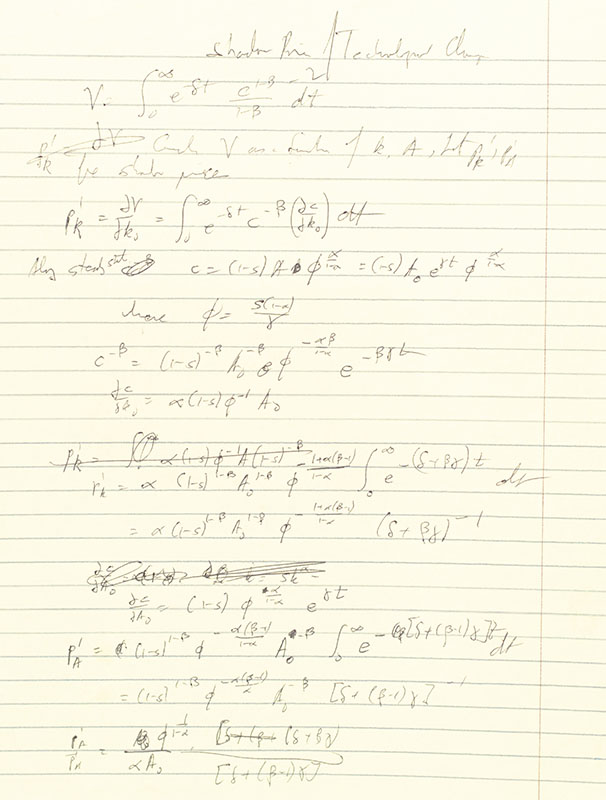 Shadow Price / Technological Change
V = ∫₀^∞ e^{-δt} c^{1-β}/(1-β) dt
V as a function of k, A, Let p'_k, p'_A
be shadow prices
p'_k = ∂V/∂k₀ = ∫₀^∞ e^{-δt} c^{-β} (∂c/∂k₀) dt
Along steady state c = (1-s) A φ^{α/(1-α)} = (1-s) A₀ e^{γt} φ^{α/(1-α)}
where φ = s(1-α)/γ
c^{-β} = (1-s)^{-β} A₀^{-β} φ^{-αβ/(1-α)} e^{-βγt}
∂c/∂k₀ = α(1-s) φ^{-1} A₀
p'_k = α (1-s)^{1-β} A₀^{1-β} φ^{-(1+α(β-1))/(1-α)} ∫₀^∞ e^{-(δ+βγ)t} dt
= α (1-s)^{1-β} A₀^{1-β} φ^{-(1+α(β-1))/(1-α)} (δ+βγ)^{-1}
∂c/∂A₀ = (1-s) φ^{α/(1-α)} e^{γt}
p'_A = (1-s)^{1-β} φ^{-α(β-1)/(1-α)} A₀^{-β} ∫₀^∞ e^{-[δ+(β-1)γ]t} dt
= (1-s)^{1-β} φ^{-α(β-1)/α} A₀^{-β} [δ+(β-1)γ]^{-1}
p'_A/p'_k = φ^{1/(1-α)}/(αA₀) · (δ+βγ)/[δ+(β-1)γ]